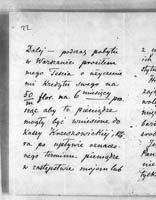 22
Dalej — podczas pobytu
w Warszawie prosiłem
mego Teścia o użyczenie
mi Kredytu swego na
50 m flor. na 6 miesięcy
prosząc aby te pieniądze
mogły być wniesione do
Kassy Krzeszowickiej, któ
ra po upływie oznaczo
nego Terminu pieniądze
w zastępstwie mojem lub